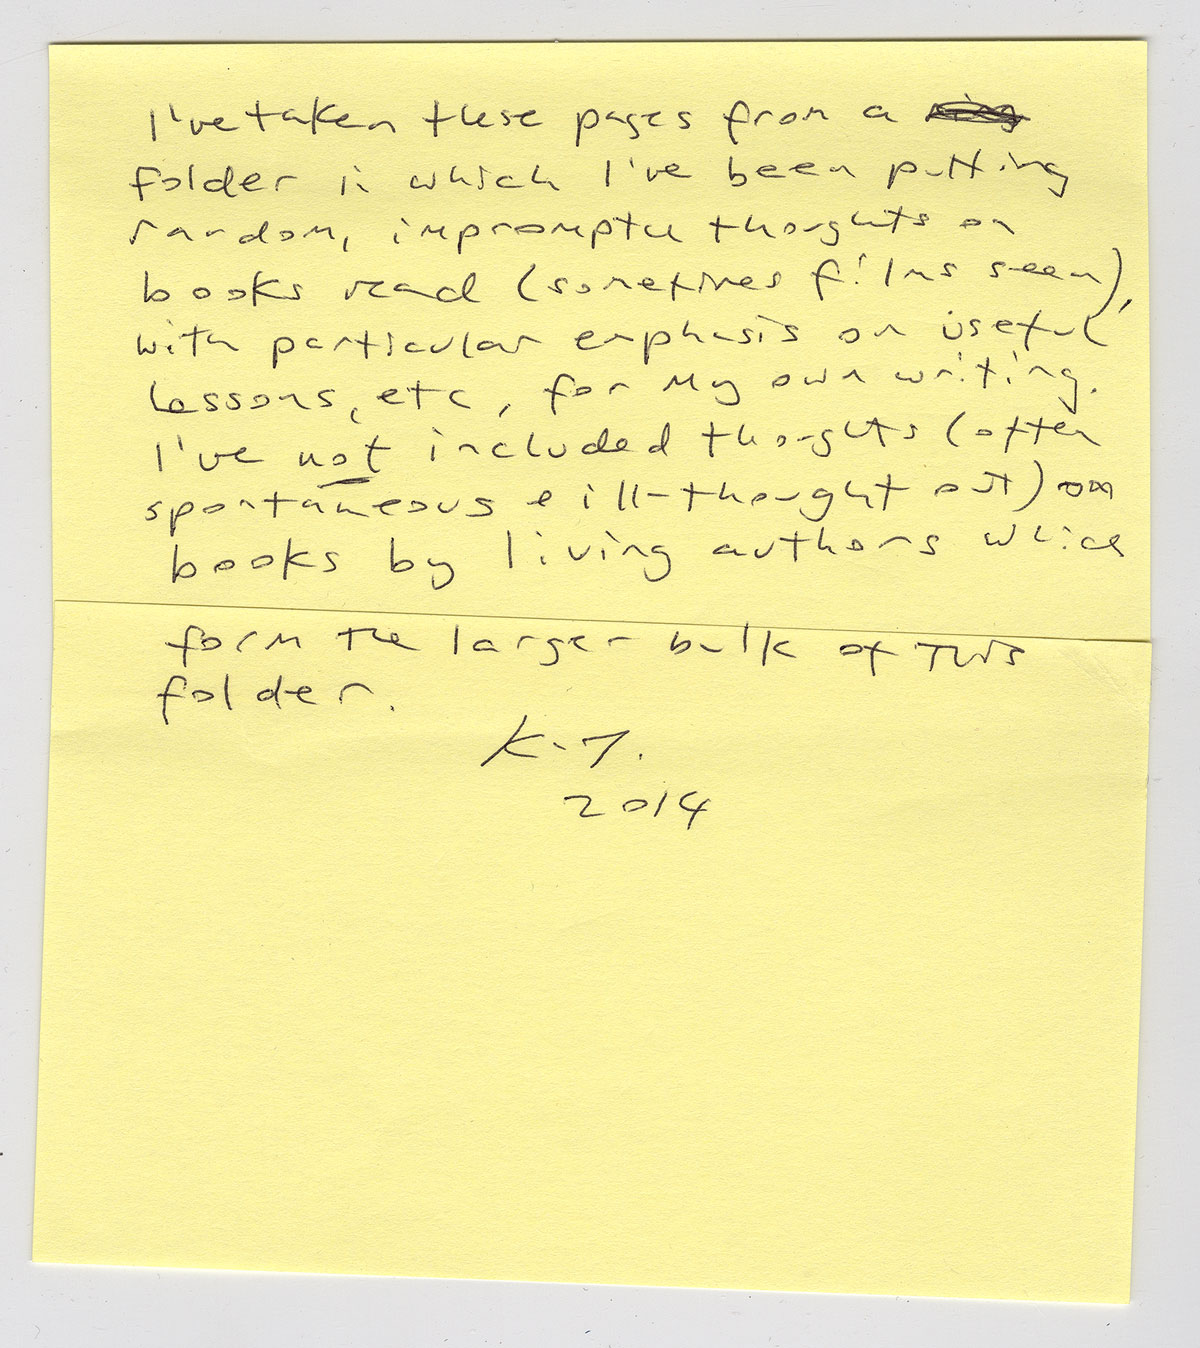 I've taken these pages from a
folder in which I've been putting
random, impromptu thoughts on
books read (sometimes films seen),
with particular emphasis on useful
lessons, etc, for my own writing.
I've not included thoughts (often
spontaneous & ill-thought out) on
books by living authors which
form the larger bulk of this
folder.
K.I.
2014